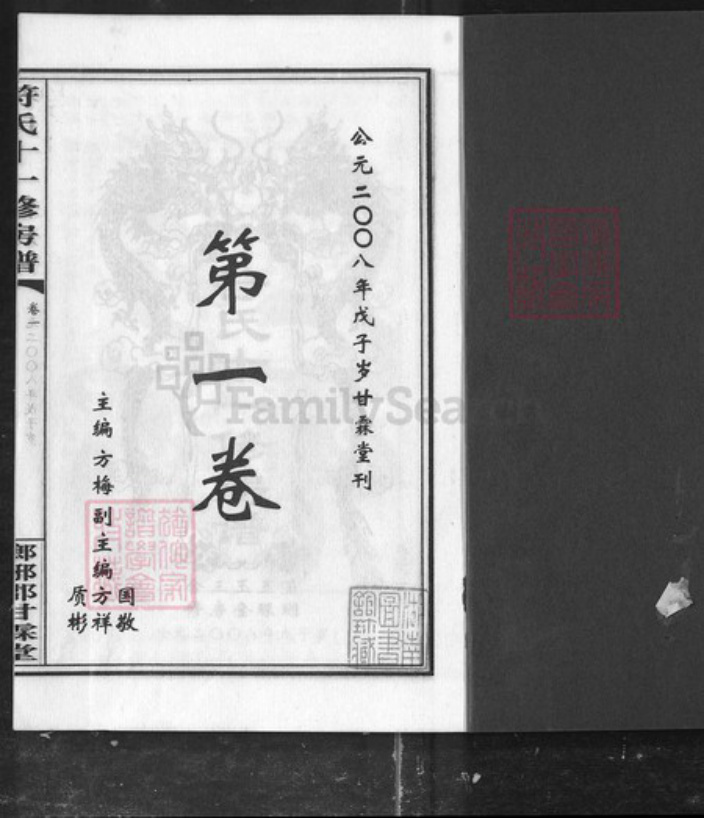 公元二〇〇八年戊子岁甘霖堂刊
第一卷
主编方梅副主编方祥
国敬
质彬
符氏十一修房谱
卷一
二〇〇八年戊子岁
郎邪郡甘霖堂
湖南图书馆珍藏
FamilySearch